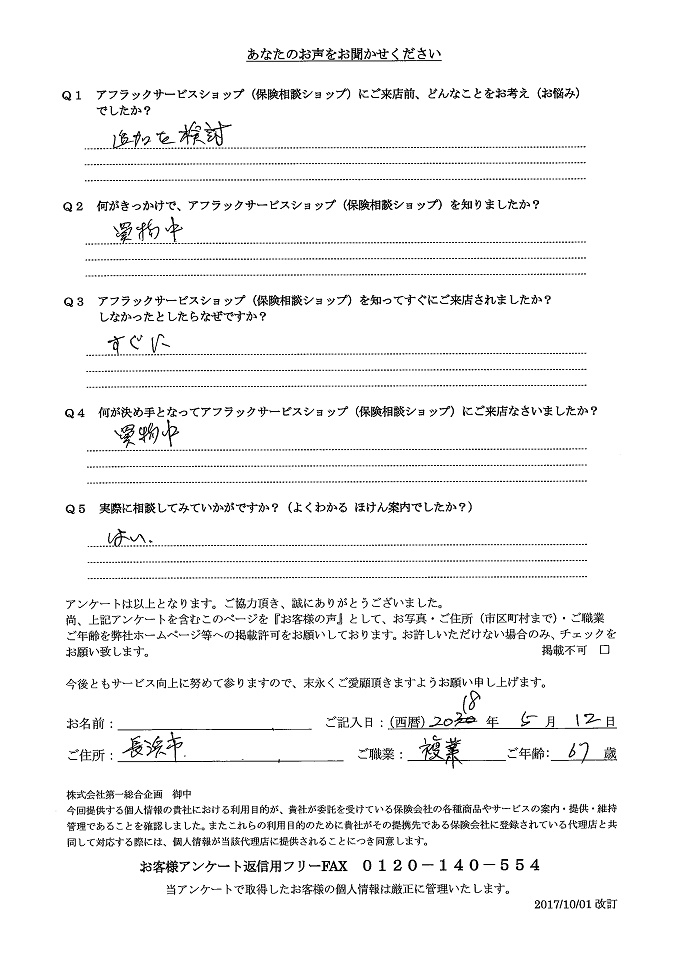 あなたのお声をお聞かせください
Q1 アフラックサービスショップ（保険相談ショップ）にご来店前、どんなことをお考え（お悩み）
でしたか？
追加を検討
Q2 何がきっかけで、アフラックサービスショップ（保険相談ショップ）を知りましたか？
買物中
Q3 アフラックサービスショップ（保険相談ショップ）を知ってすぐにご来店されましたか？
しなかったとしたらなぜですか？
すぐに
Q4 何が決め手となってアフラックサービスショップ（保険相談ショップ）にご来店なさいましたか？
買物中
Q5 実際に相談してみていかがですか？（よくわかる ほけん案内でしたか？）
はい.
アンケートは以上となります。ご協力頂き、誠にありがとうございました。
尚、上記アンケートを含むこのページを『お客様の声』として、お写真・ご住所（市区町村まで）・ご職業
ご年齢を弊社ホームページ等への掲載許可をお願いしております。お許しいただけない場合のみ、チェックを
お願い致します。 掲載不可 □
今後ともサービス向上に努めて参りますので、末永くご愛顧頂きますようお願い申し上げます。
お名前： ご記入日：(西暦) 2018 年 5 月 12 日
ご住所： 長浜市 ご職業： 複業 ご年齢： 67 歳
株式会社第一総合企画 御中
今回提供する個人情報の貴社における利用目的が、貴社が委託を受けている保険会社の各種商品やサービスの案内・提供・維持
管理であることを確認しました。またこれらの利用目的のために貴社がその提携先である保険会社に登録されている代理店と共
同して対応する際には、個人情報が当該代理店に提供されることにつき同意します。
お客様アンケート返信用フリーFAX 0120－140－554
当アンケートで取得したお客様の個人情報は厳正に管理いたします。
2017/10/01 改訂